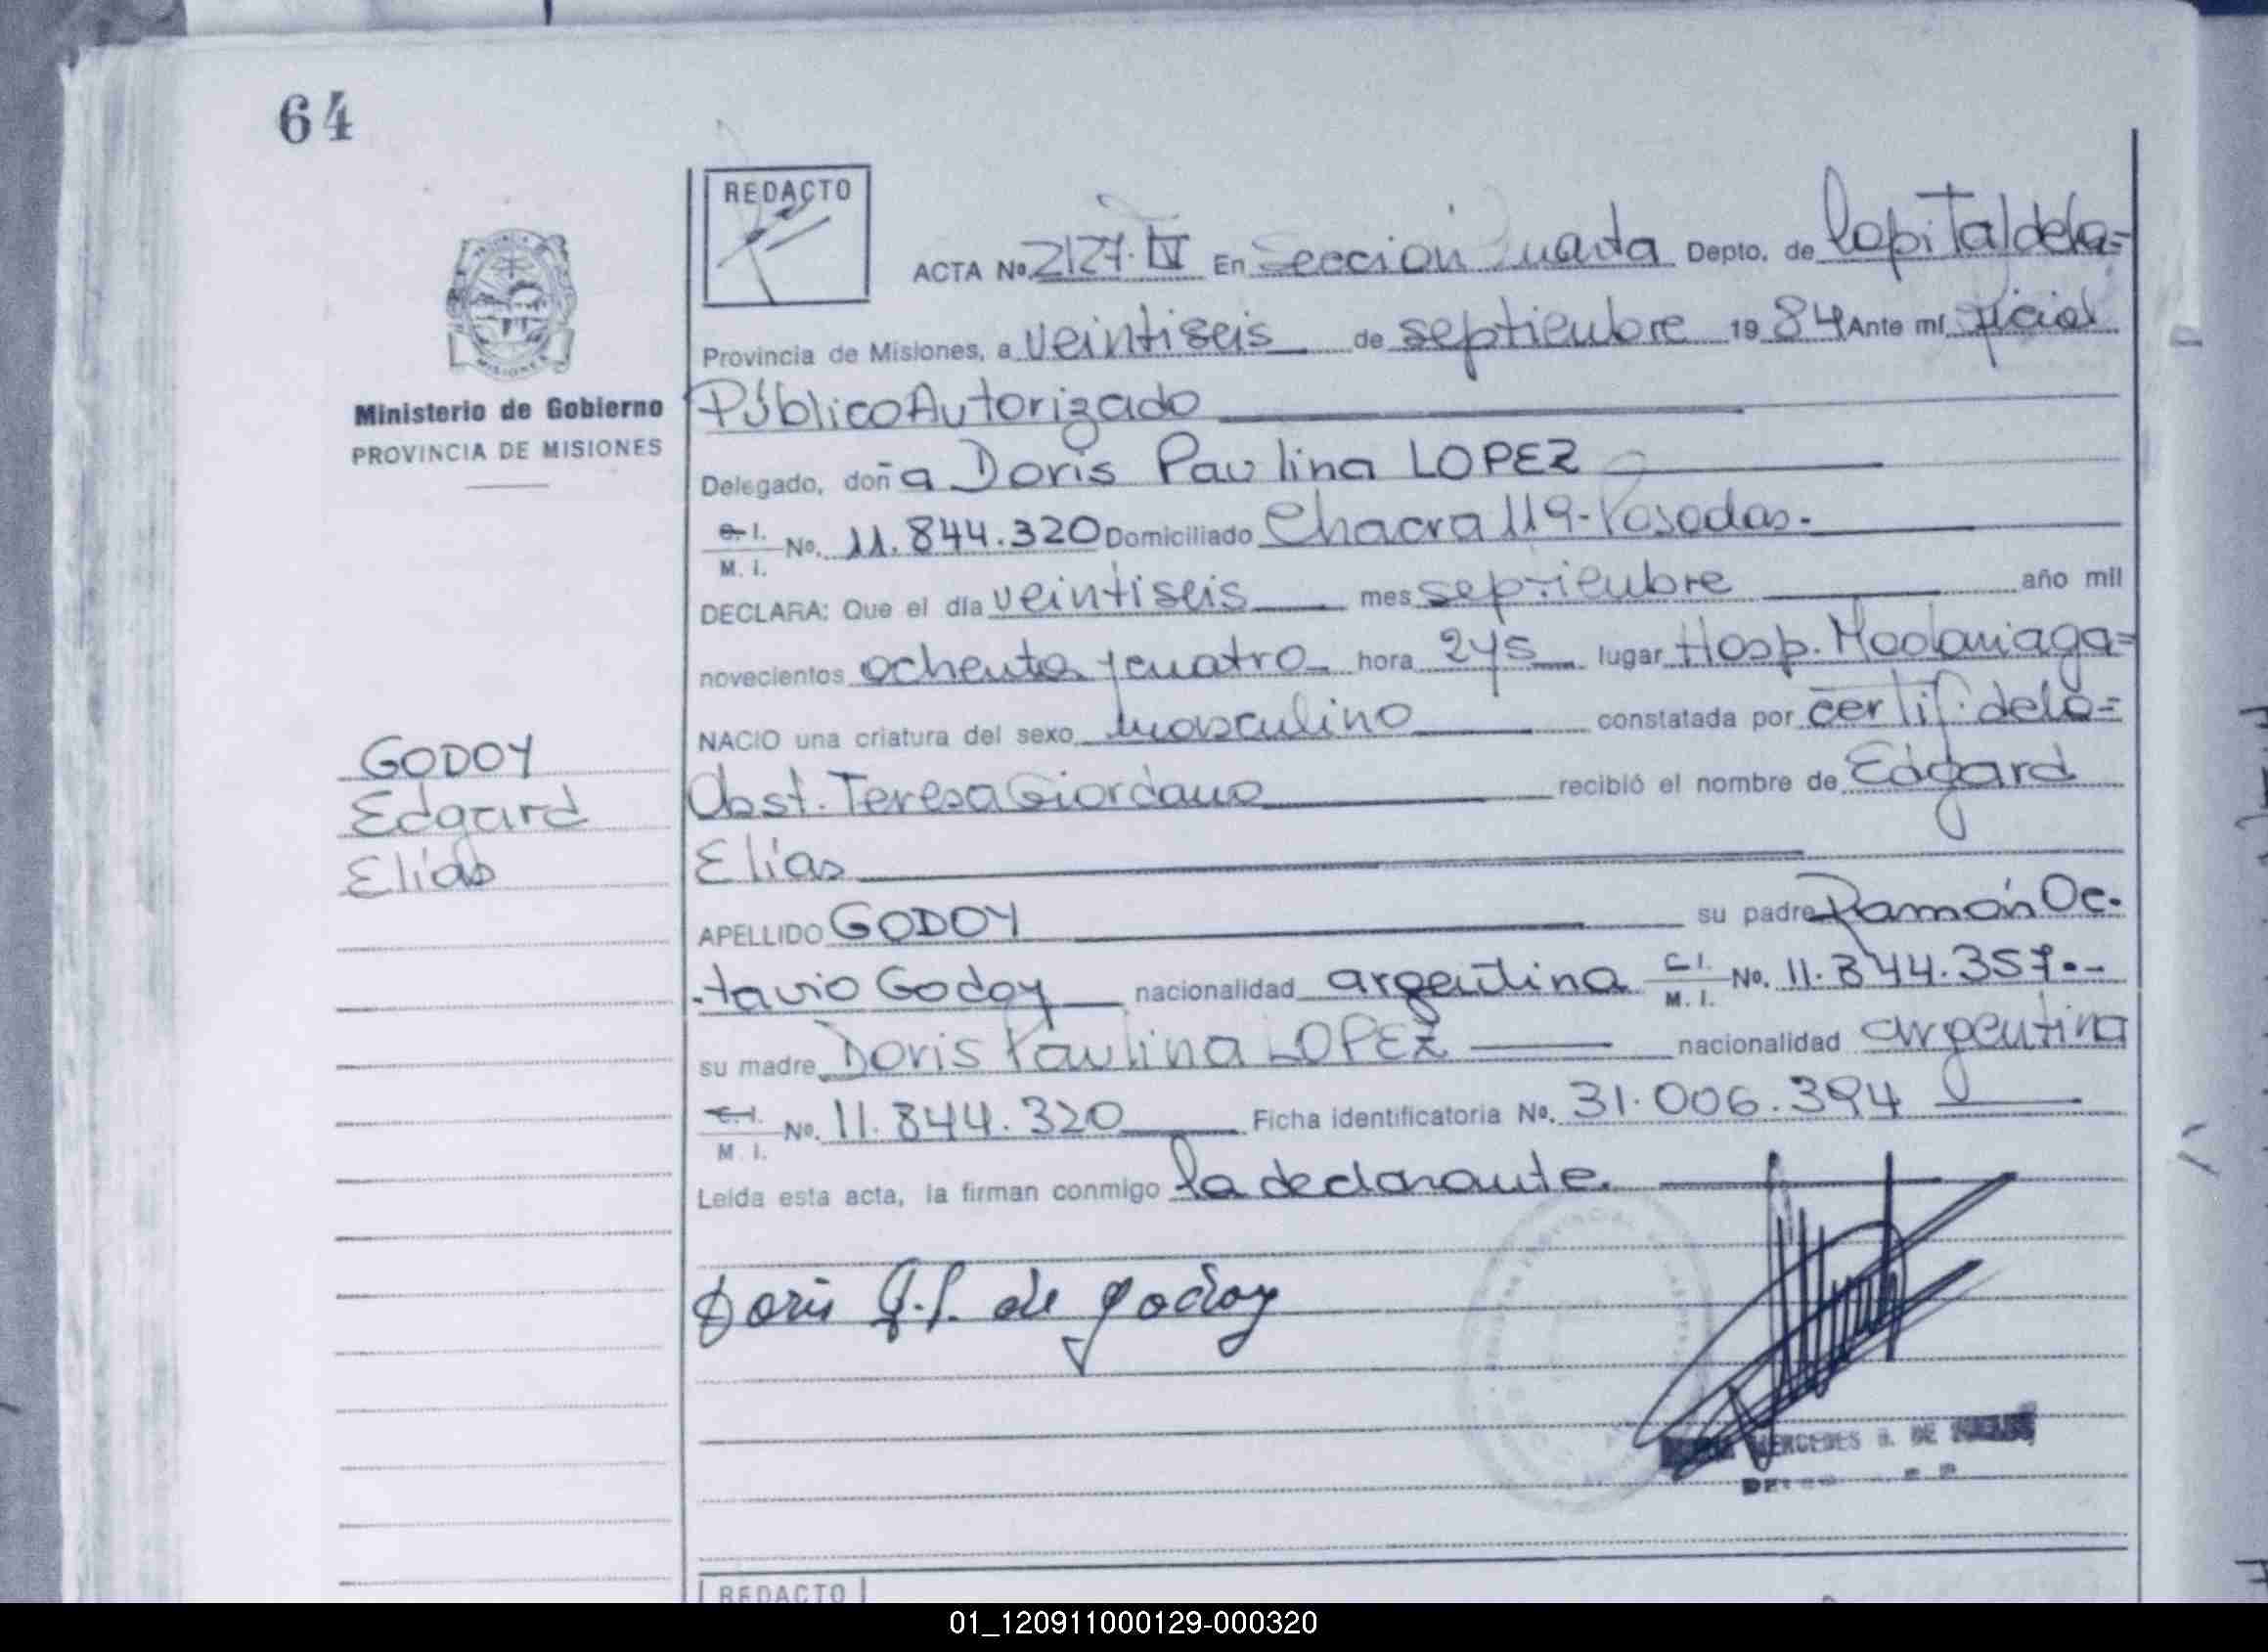 64
REDACTO
ACTA Nº 2127·IV En Sección Cuarta Depto. de Capital dela=
Provincia de Misiones, a veintiseis de septiembre 19 84 Ante mí, oficial
Público Autorizado
Ministerio de Gobierno
PROVINCIA DE MISIONES
Delegado, doñ a Doris Paulina LOPEZ
C. I.
M. I. Nº. 11.844.320 Domiciliado Chacra 119-Posadas.
DECLARA: Que el día veintiseis mes septiembre año mil
novecientos ochenta y cuatro hora 2y5 lugar Hosp. Madariaga=
NACIO una criatura del sexo masculino constatada por certif. dela=
Obst. Teresa Giordano recibió el nombre de Edgard
Elías
GODOY
Edgard
Elías
APELLIDO GODOY su padre Ramón Oc-
-tavio Godoy nacionalidad argentina C I.
M. I. Nº. 11.844.357.-
su madre Doris Paulina LOPEZ nacionalidad argentina
C. I.
M. I. Nº. 11.844.320 Ficha identificatoria Nº. 31.006.394
Leída esta acta, la firman conmigo la declarante.
Doris de Godoy
MERCEDES B. DE
REDACTO
01_120911000129-000320